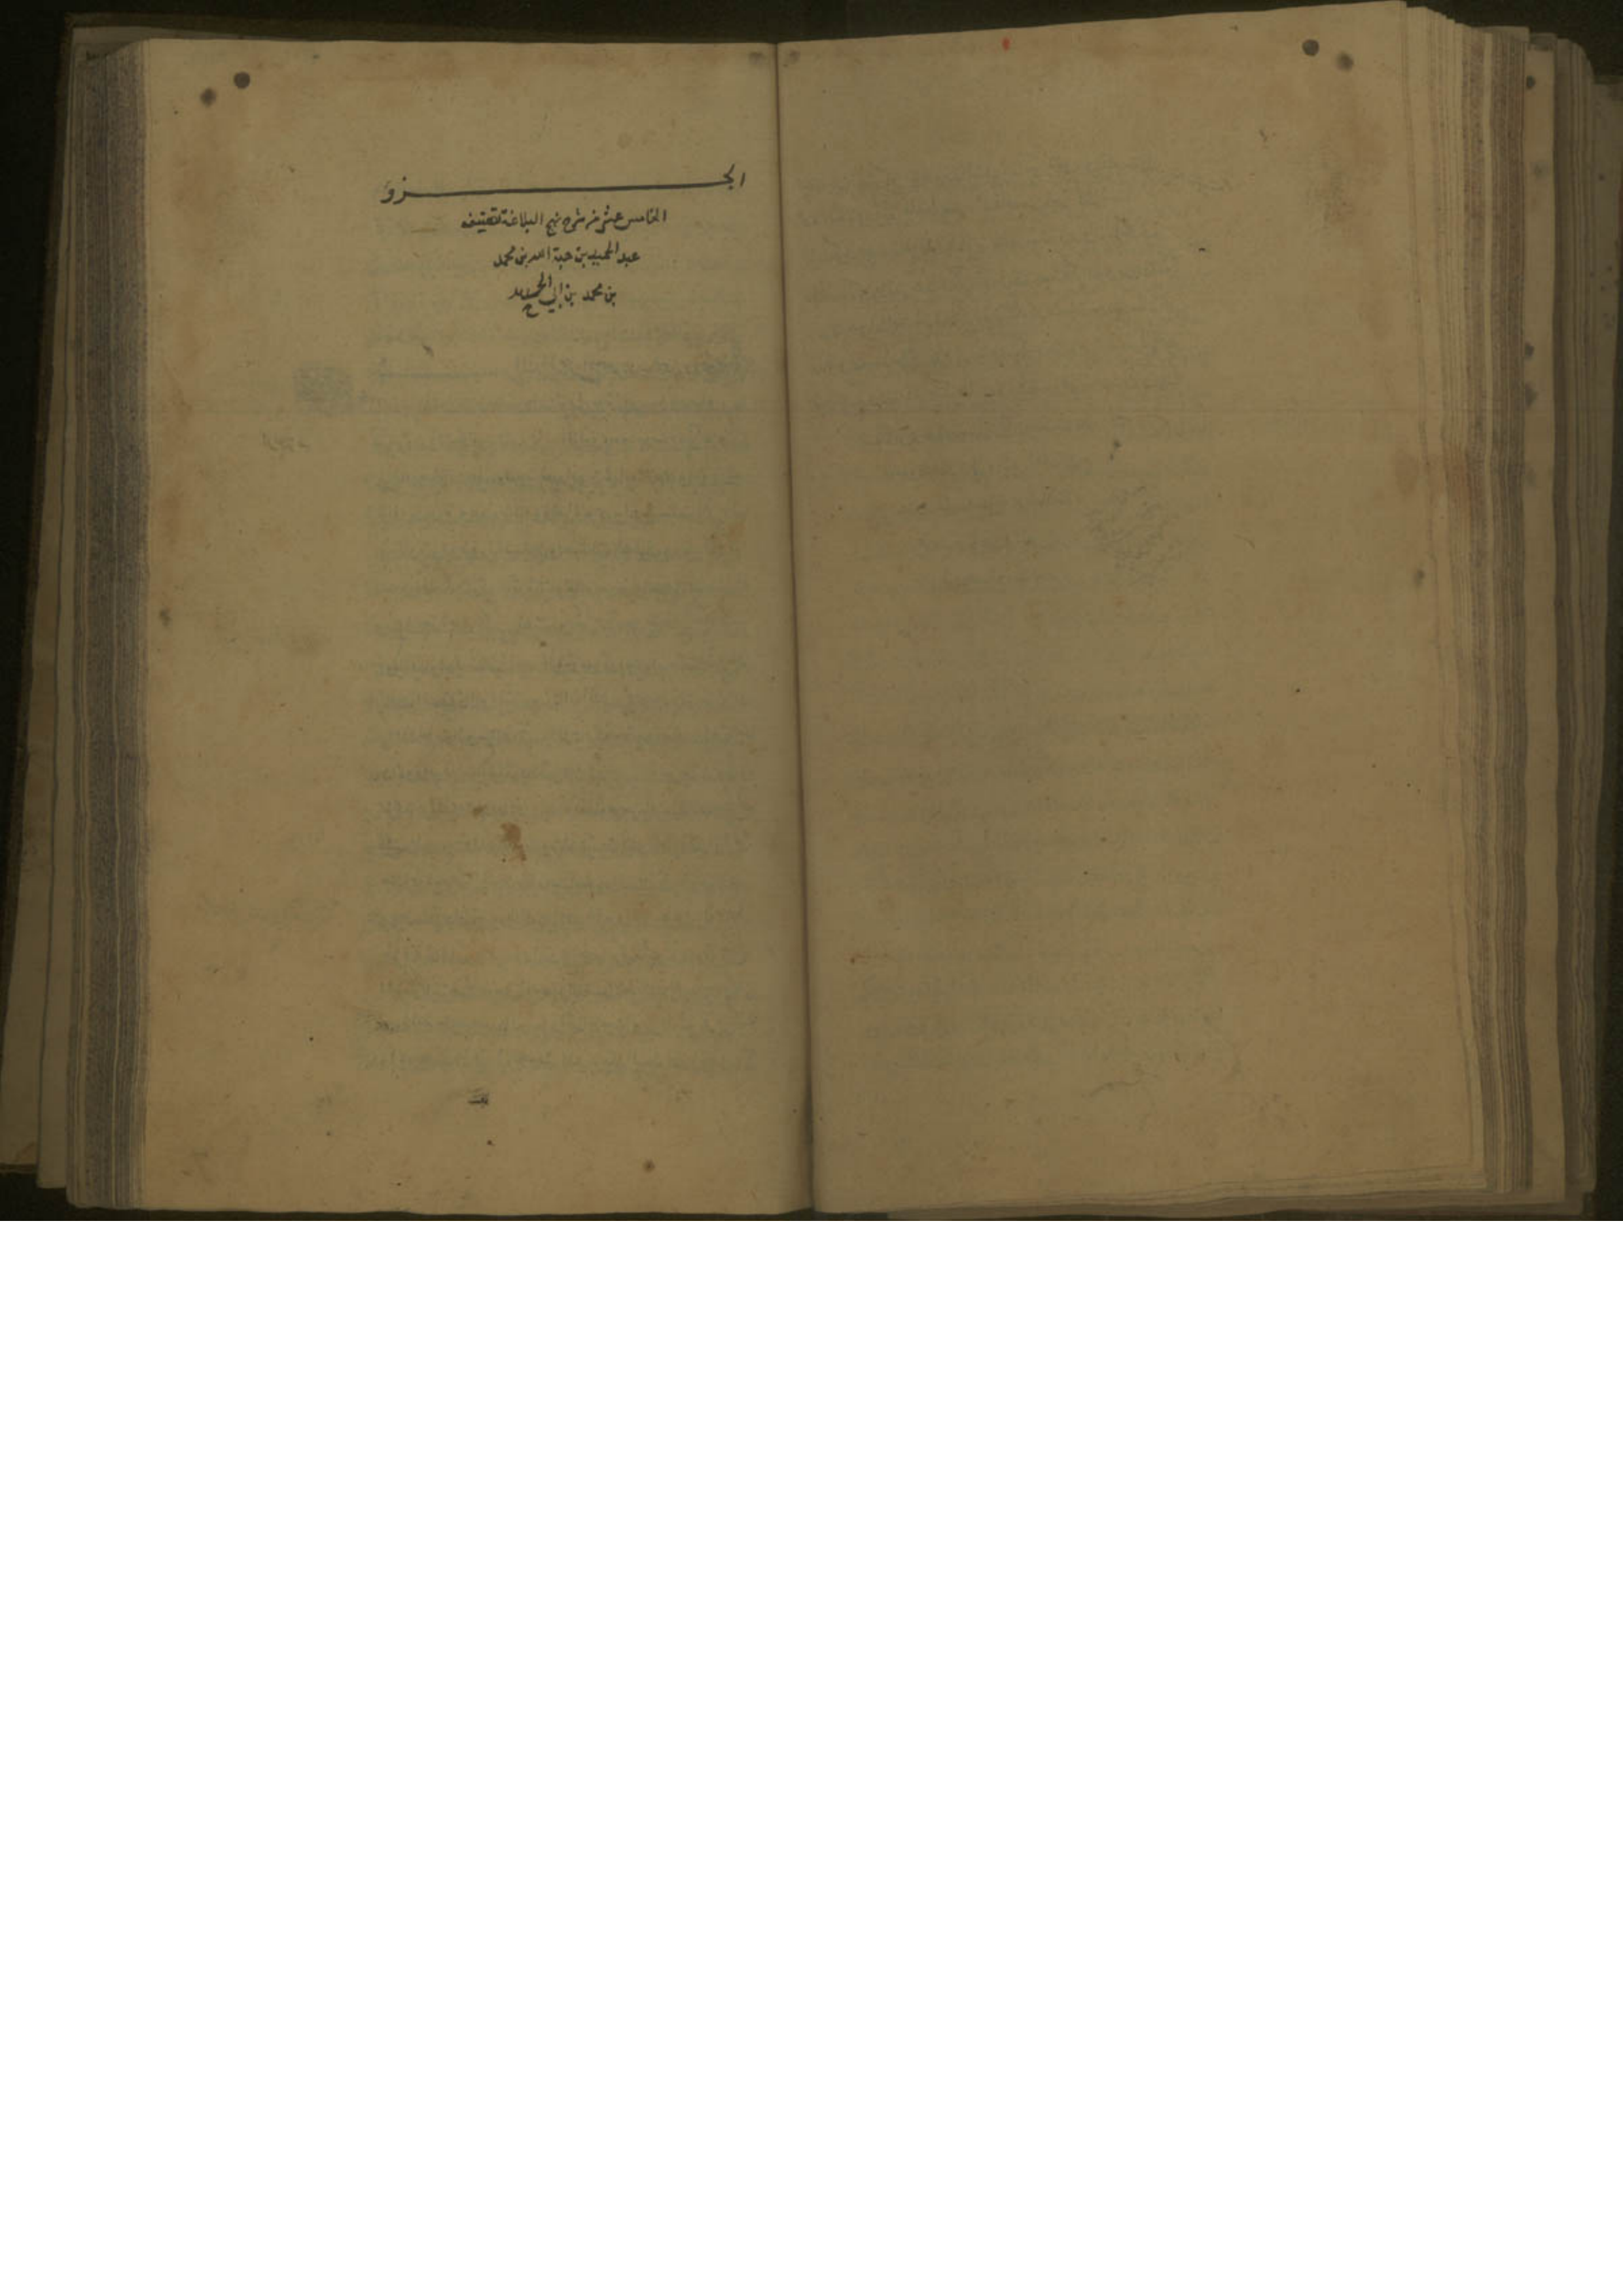 الجزو
الخامس عشر من شرح نهج البلاغة تصنيف
عبد الحميد بن هبة الله بن محمد
بن محمد بن أبي الحديد